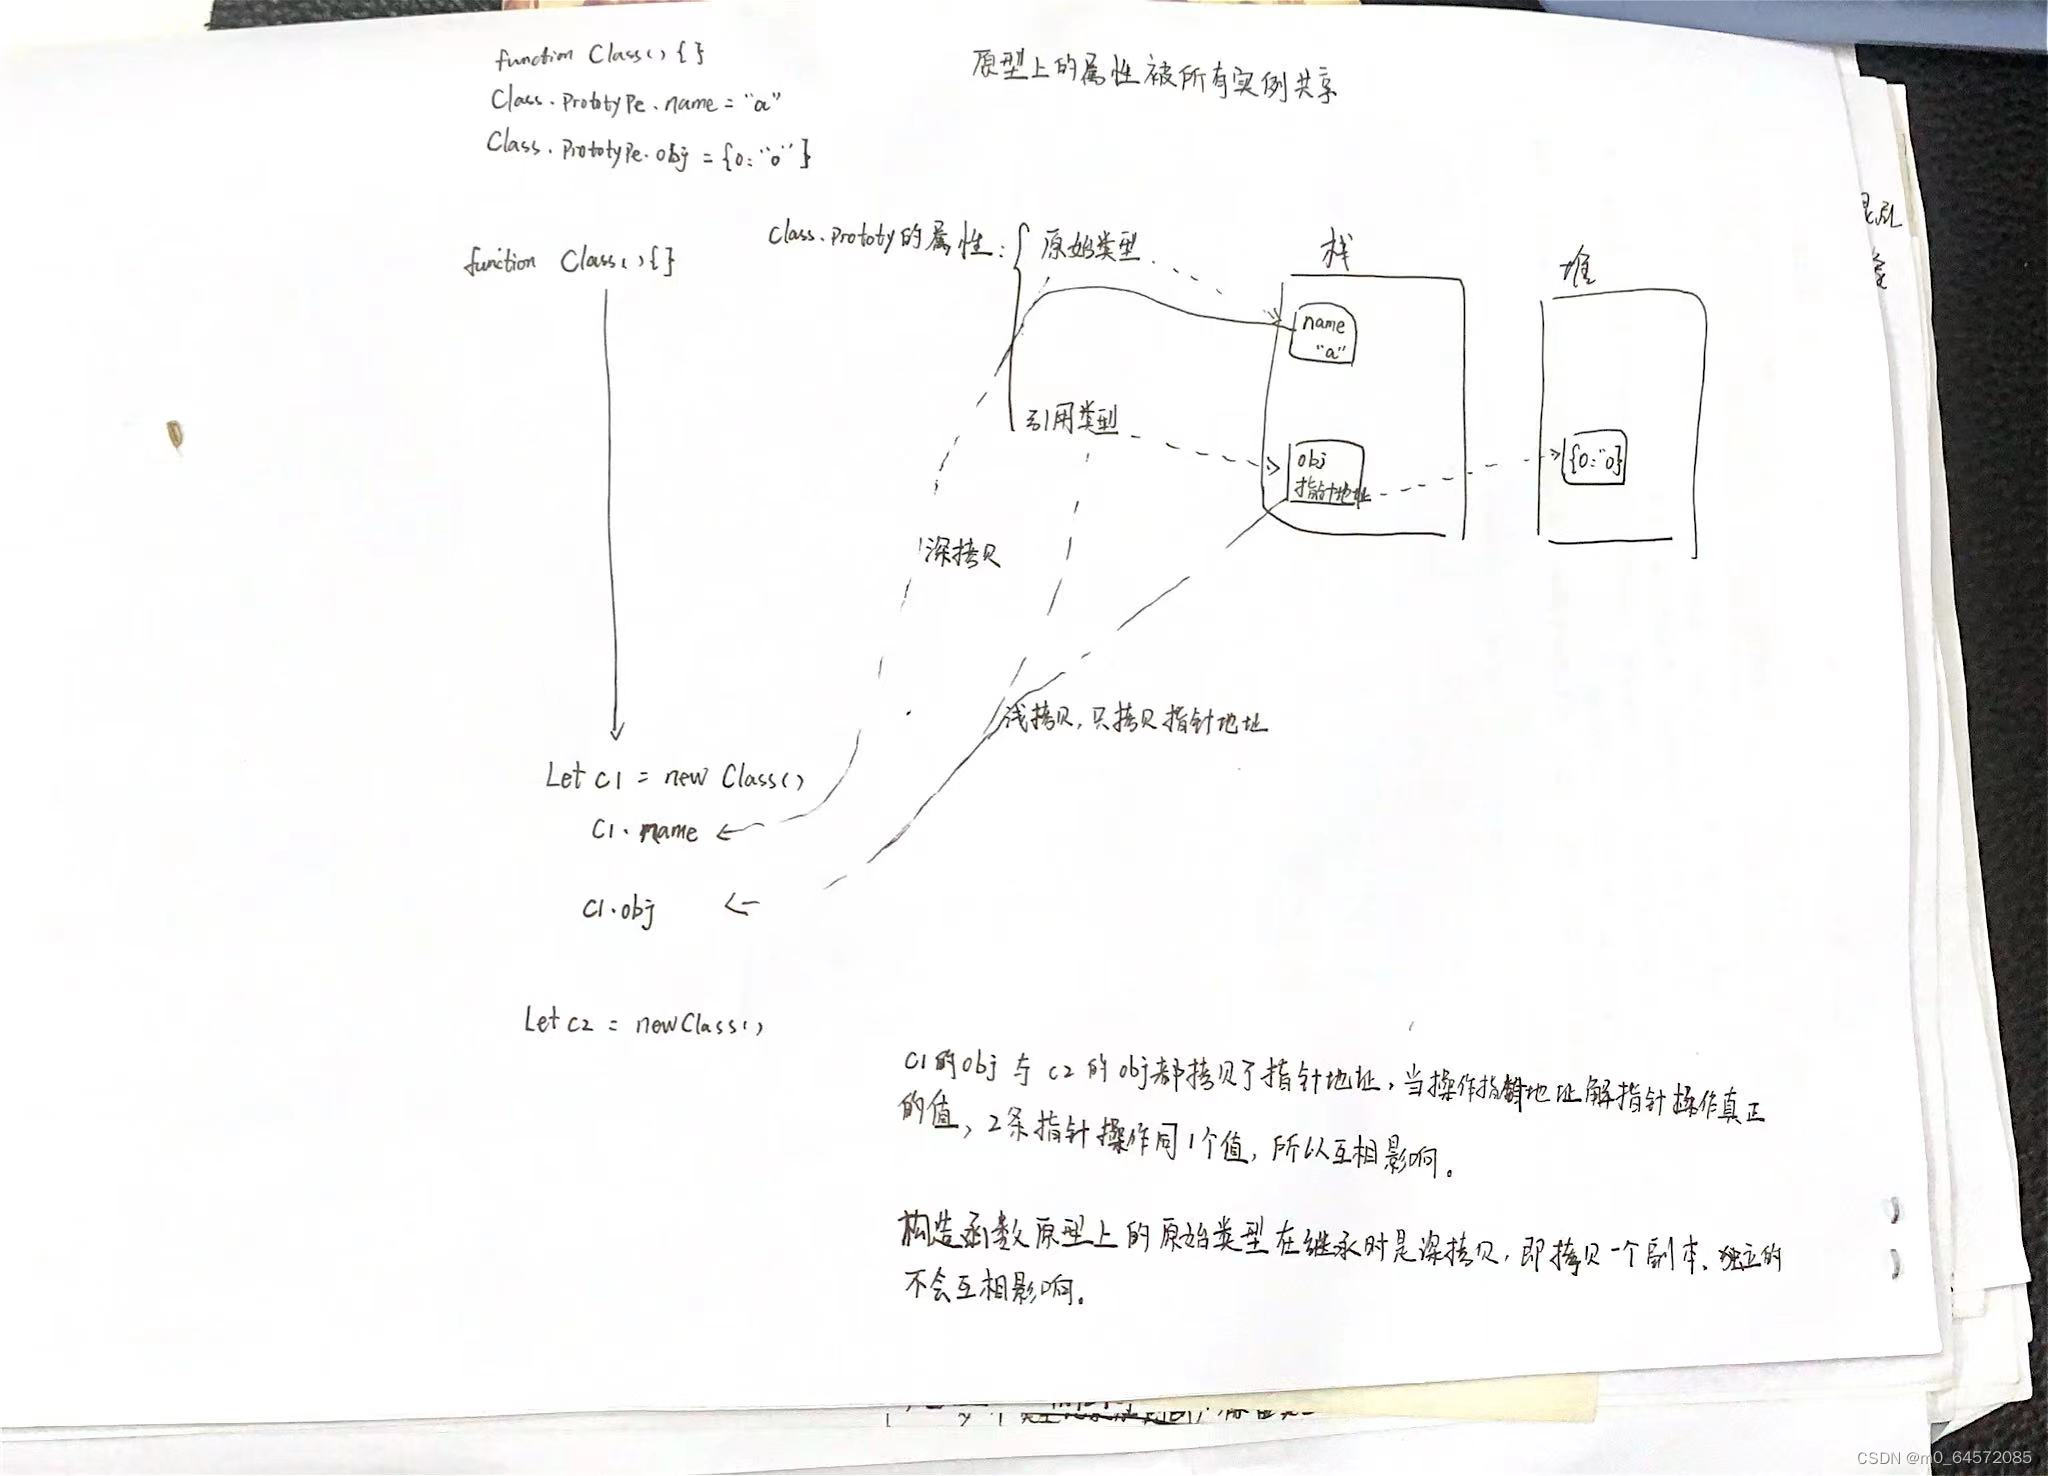 function Class() {}
原型上的属性被所有实例共享
Class.prototype.name = "a"
Class.prototype.obj = {0:"0"}
Class.prototy的属性:
原始类型
栈
堆
function Class() {}
name
"a"
引用类型
obj
指针地址
{0:"0}
深拷贝
浅拷贝,只拷贝指针地址
Let c1 = new Class()
C1.name
C1.obj
Let c2 = new Class()
C1的obj与c2的obj都拷贝了指针地址,当操作指针地址解指针操作真正
的值,2条指针操作同1个值,所以互相影响。
构造函数原型上的原始类型在继承时是深拷贝,即拷贝一个副本、独立的
不会互相影响。
CSDN @m0_64572085